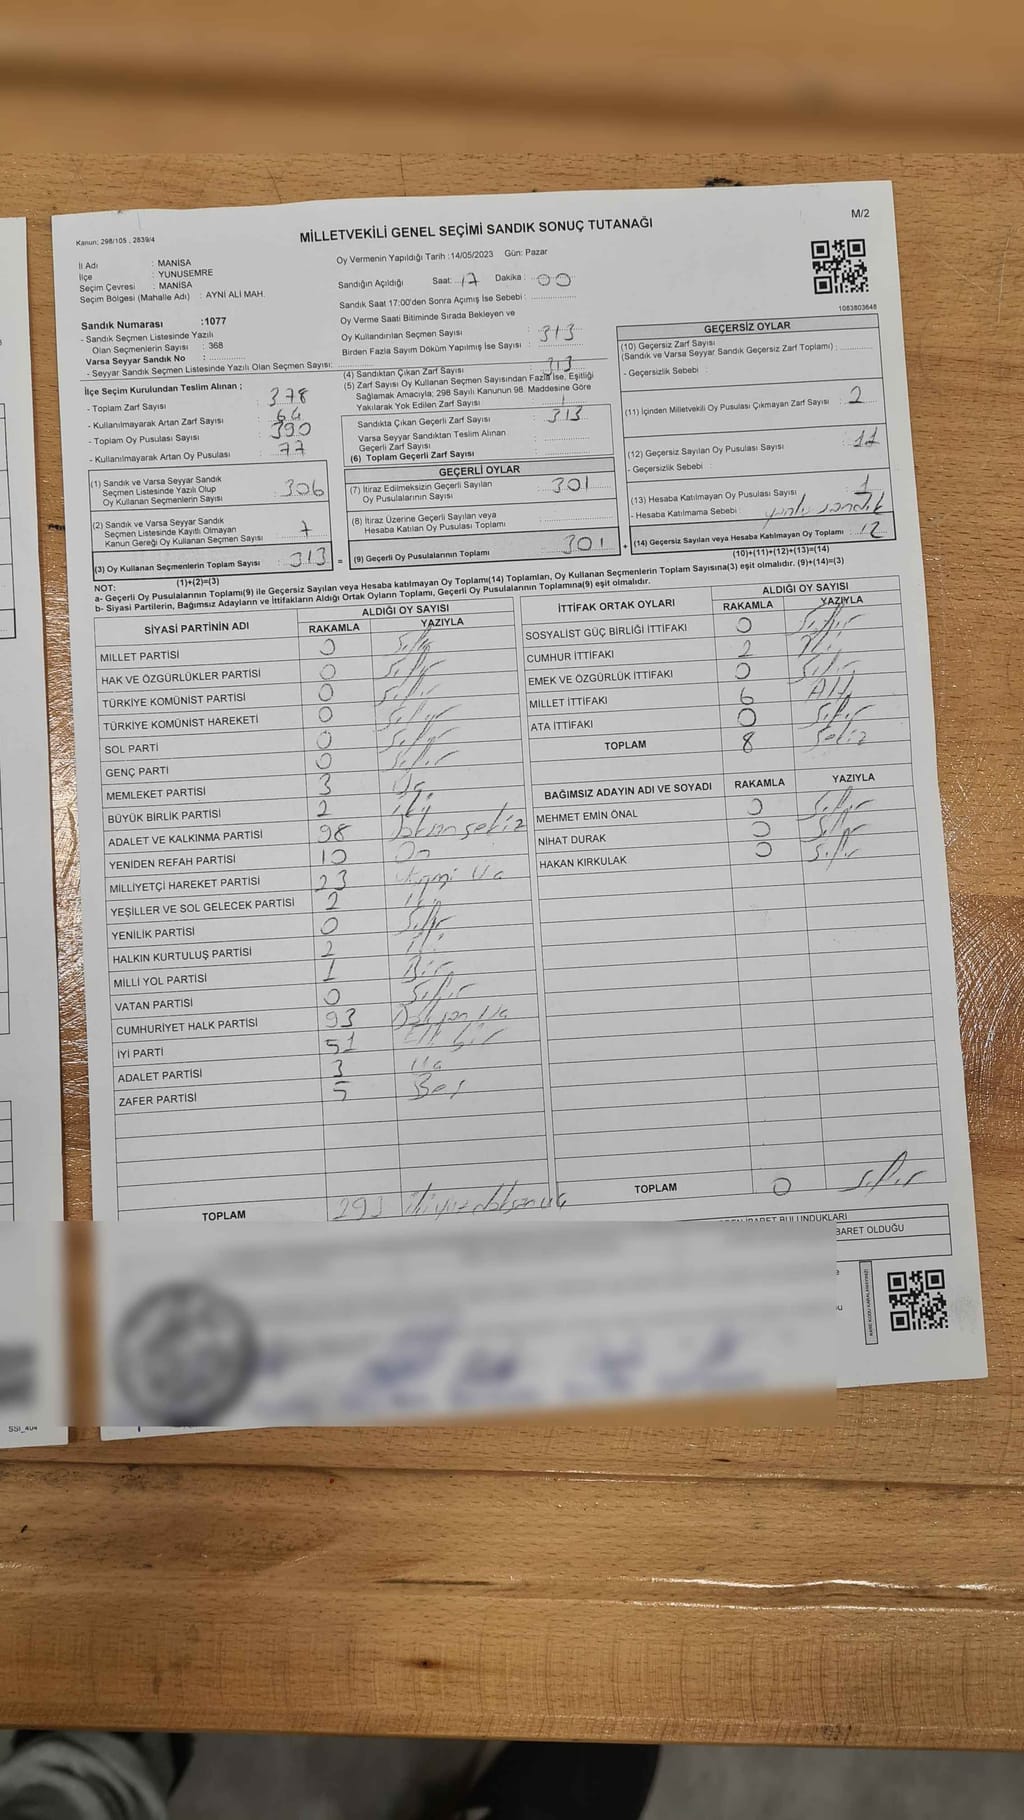 Kanun; 298/105 , 2839/4
MİLLETVEKİLİ GENEL SEÇİMİ SANDIK SONUÇ TUTANAĞI
M/2
İl Adı : MANİSA
İlçe : YUNUSEMRE
Seçim Çevresi : MANİSA
Seçim Bölgesi (Mahalle Adı) : AYNİ ALİ MAH.
Oy Vermenin Yapıldığı Tarih :14/05/2023 Gün: Pazar
Sandığın Açıldığı Saat: 17 Dakika : 00
Sandık Saat 17:00'den Sonra Açımış İse Sebebi :
Oy Verme Saati Bitiminde Sırada Bekleyen ve
Oy Kullandırılan Seçmen Sayısı : 313
Birden Fazla Sayım Döküm Yapılmış İse Sayısı :
1083803648
Sandık Numarası :1077
- Sandık Seçmen Listesinde Yazılı
Olan Seçmenlerin Sayısı : 368
Varsa Seyyar Sandık No :
- Seyyar Sandık Seçmen Listesinde Yazılı Olan Seçmen Sayısı:
İlçe Seçim Kurulundan Teslim Alınan ;
- Toplam Zarf Sayısı : 378
- Kullanılmayarak Artan Zarf Sayısı : 64
- Toplam Oy Pusulası Sayısı : 390
- Kullanılmayarak Artan Oy Pusulası : 77
(1) Sandık ve Varsa Seyyar Sandık
Seçmen Listesinde Yazılı Olup
Oy Kullanan Seçmenlerin Sayısı : 306
(2) Sandık ve Varsa Seyyar Sandık
Seçmen Listesinde Kayıtlı Olmayan
Kanun Gereği Oy Kullanan Seçmen Sayısı : 7
(3) Oy Kullanan Seçmenlerin Toplam Sayısı : 313 =
(1)+(2)=(3)
(4) Sandıktan Çıkan Zarf Sayısı : 313
(5) Zarf Sayısı Oy Kullanan Seçmen Sayısından Fazla İse, Eşitliği
Sağlamak Amacıyla; 298 Sayılı Kanunun 98. Maddesine Göre
Yakılarak Yok Edilen Zarf Sayısı :
Sandıkta Çıkan Geçerli Zarf Sayısı : 313
Varsa Seyyar Sandıktan Teslim Alınan
Geçerli Zarf Sayısı :
(6) Toplam Geçerli Zarf Sayısı :
GEÇERLİ OYLAR
(7) İtiraz Edilmeksizin Geçerli Sayılan
Oy Pusulalarının Sayısı : 301
(8) İtiraz Üzerine Geçerli Sayılan veya
Hesaba Katılan Oy Pusulası Toplamı :
(9) Geçerli Oy Pusulalarının Toplamı : 301 +
GEÇERSİZ OYLAR
(10) Geçersiz Zarf Sayısı
(Sandık ve Varsa Seyyar Sandık Geçersiz Zarf Toplamı) :
- Geçersizlik Sebebi :
(11) İçinden Milletvekili Oy Pusulası Çıkmayan Zarf Sayısı : 2
(12) Geçersiz Sayılan Oy Pusulası Sayısı : 11
- Geçersizlik Sebebi :
(13) Hesaba Katılmayan Oy Pusulası Sayısı : 1
- Hesaba Katılmama Sebebi :
(14) Geçersiz Sayılan veya Hesaba Katılmayan Oy Toplamı : 12
(10)+(11)+(12)+(13)=(14)
NOT:
a- Geçerli Oy Pusulalarının Toplamı(9) ile Geçersiz Sayılan veya Hesaba katılmayan Oy Toplamı(14) Toplamları, Oy Kullanan Seçmenlerin Toplam Sayısına(3) eşit olmalıdır. (9)+(14)=(3)
b- Siyasi Partilerin, Bağımsız Adayların ve İttifakların Aldığı Ortak Oyların Toplamı, Geçerli Oy Pusulalarının Toplamına(9) eşit olmalıdır.
SİYASİ PARTİNİN ADI ALDIĞI OY SAYISI
RAKAMLA YAZIYLA
MİLLET PARTİSİ 0 Sıfır
HAK VE ÖZGÜRLÜKLER PARTİSİ 0 Sıfır
TÜRKİYE KOMÜNİST PARTİSİ 0 Sıfır
TÜRKİYE KOMÜNİST HAREKETİ 0 Sıfır
SOL PARTİ 0 Sıfır
GENÇ PARTİ 0 Sıfır
MEMLEKET PARTİSİ 3 Üç
BÜYÜK BİRLİK PARTİSİ 2 İki
ADALET VE KALKINMA PARTİSİ 98 Doksan sekiz
YENİDEN REFAH PARTİSİ 10 On
MİLLİYETÇİ HAREKET PARTİSİ 23 Yirmi Üç
YEŞİLLER VE SOL GELECEK PARTİSİ 2 İki
YENİLİK PARTİSİ 0 Sıfır
HALKIN KURTULUŞ PARTİSİ 2 İki
MİLLİ YOL PARTİSİ 1 Bir
VATAN PARTİSİ 0 Sıfır
CUMHURİYET HALK PARTİSİ 93 Doksan Üç
İYİ PARTİ 51 Elli bir
ADALET PARTİSİ 3 Üç
ZAFER PARTİSİ 5 Beş
TOPLAM 293 İkiyüzdoksanüç
İTTİFAK ORTAK OYLARI ALDIĞI OY SAYISI
RAKAMLA YAZIYLA
SOSYALİST GÜÇ BİRLİĞİ İTTİFAKI 0 Sıfır
CUMHUR İTTİFAKI 2 İki
EMEK VE ÖZGÜRLÜK İTTİFAKI 0 Sıfır
MİLLET İTTİFAKI 6 Altı
ATA İTTİFAKI 0 Sıfır
TOPLAM 8 Sekiz
BAĞIMSIZ ADAYIN ADI VE SOYADI RAKAMLA YAZIYLA
MEHMET EMİN ÖNAL 0 Sıfır
NİHAT DURAK 0 Sıfır
HAKAN KIRKULAK 0 Sıfır
TOPLAM 0 Sıfır
BULUNDUKLARI
OLDUĞU
SSI_404